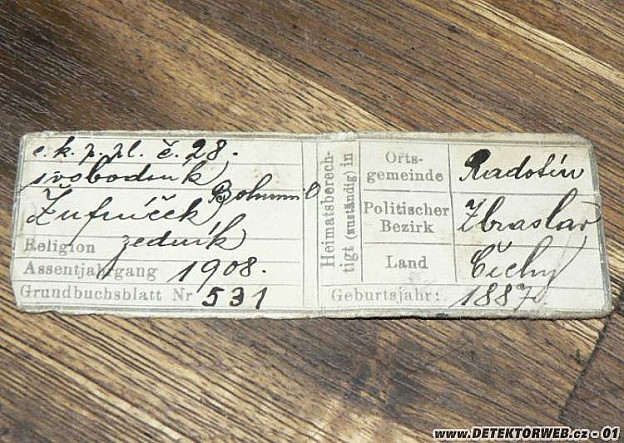 c. k. p. pl. č. 28.
svobodník
Bohumil
Žufníček
zedník
Religion
Assentjahrgang 1908.
Grundbuchsblatt Nr 531
Heimatsberech-
tigt (zuständig) in
Orts-
gemeinde Radotín
Politischer
Bezirk Zbraslav
Land Čechy
Geburtsjahr: 1887.
www.DETEKTORWEB.cz - 01